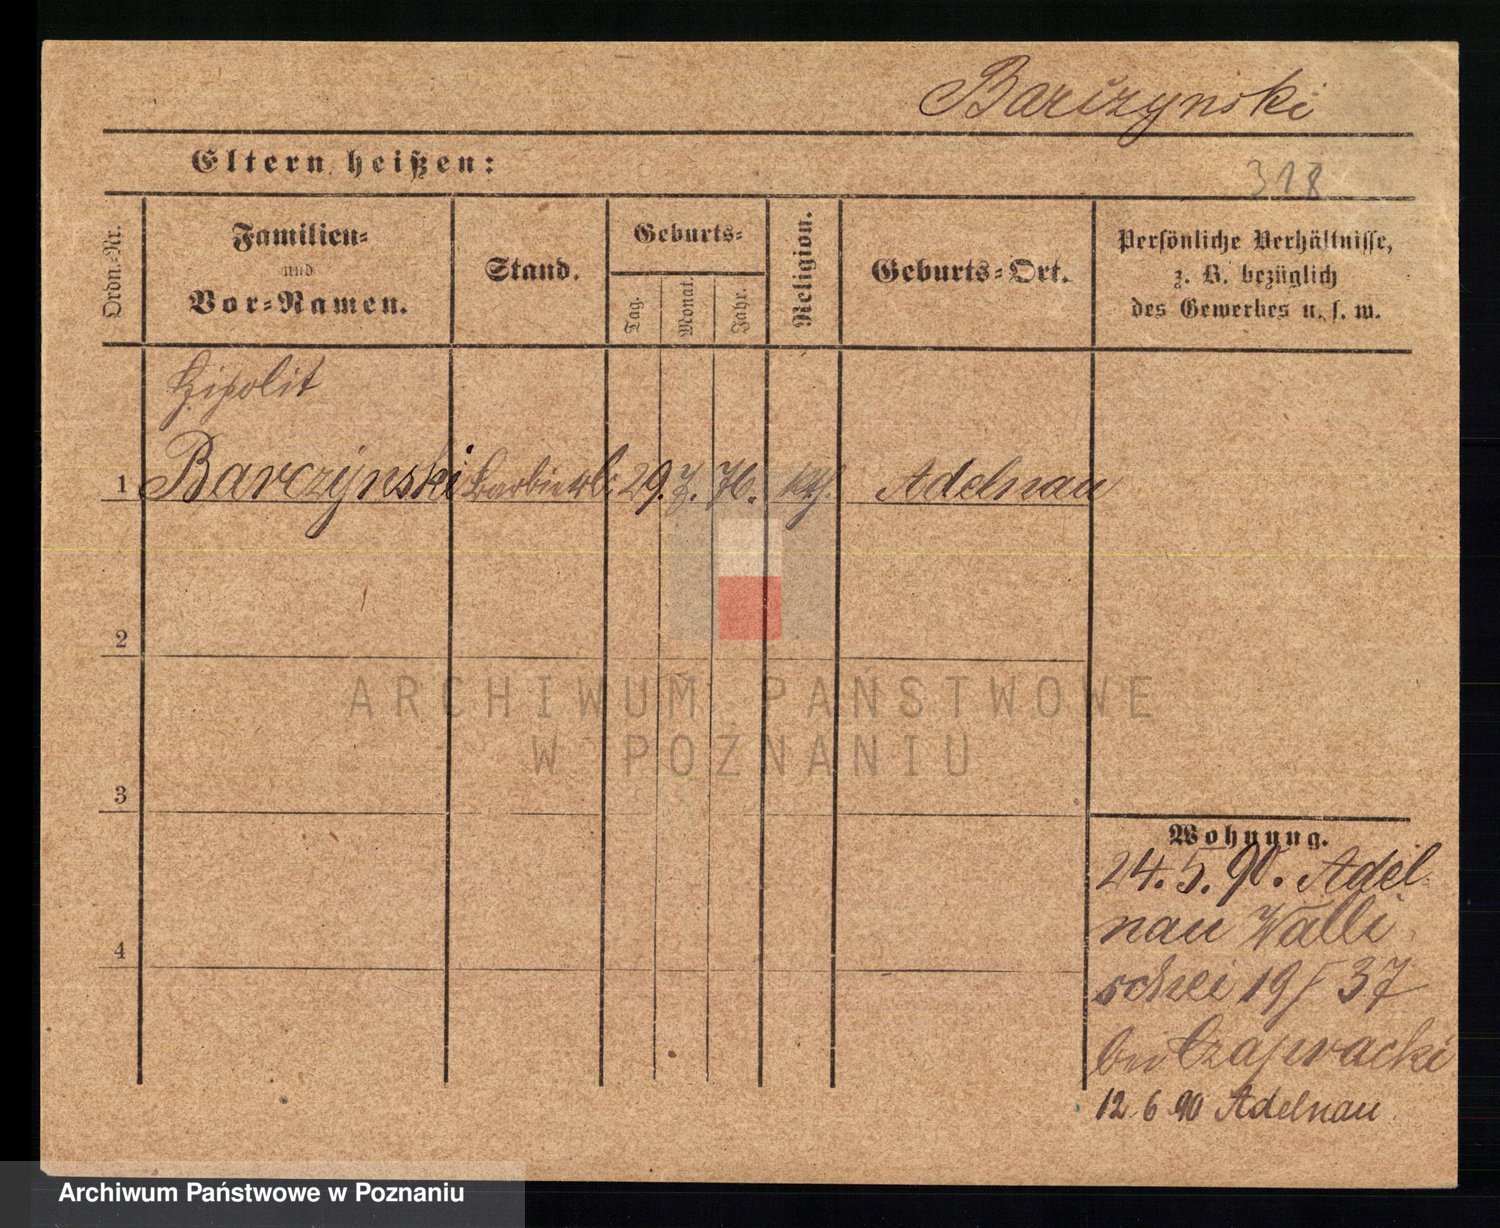 Barczynski
Eltern heißen:
318
Ordn.-Nr.
Familien-
und
Vor-Namen.
Stand.
Geburts-
Tag.
Monat.
Jahr.
Religion.
Geburts-Ort.
Persönliche Verhältnisse,
z. B. bezüglich
des Gewerbes u. s. w.
Hipolit
1 Barczynski 29. 7. 76. kth. Adelnau
2
3
4
Wohnung.
24. 5. 90. Adel-
nau Walli
schei 37
bei
12 6 90 Adelnau
ARCHIWUM PAŃSTWOWE
W POZNANIU
Archiwum Państwowe w Poznaniu